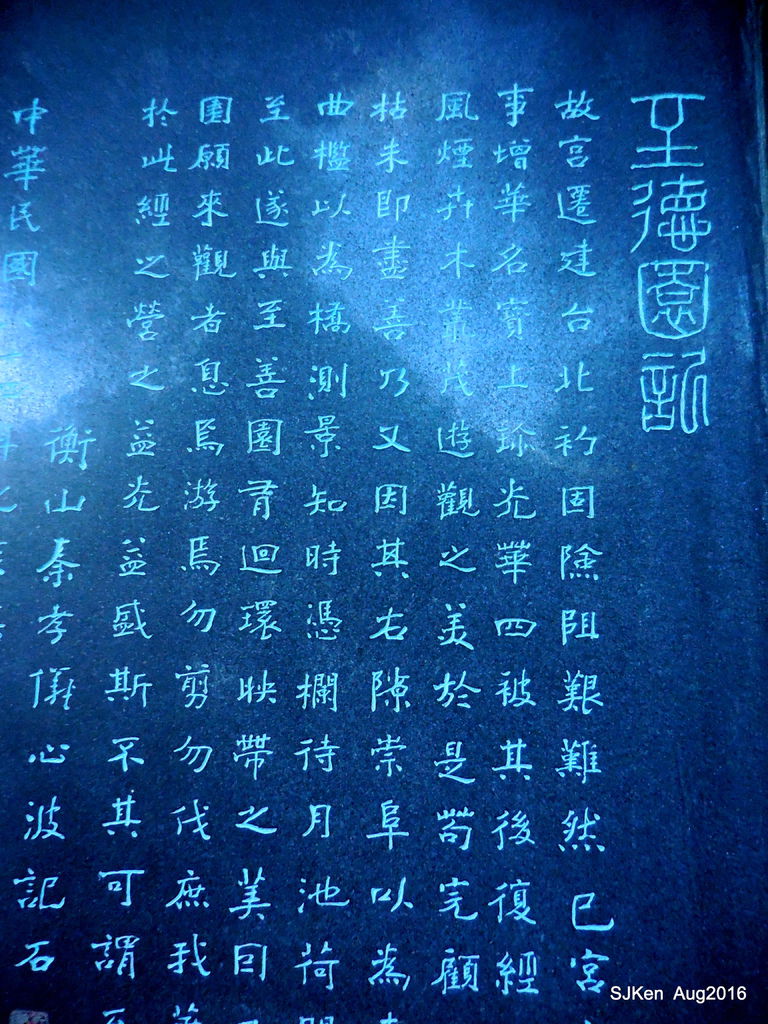 至德園記
故宮遷建台北初固險阻艱難然已宮
事增華名寶上珍光華四被其後復經
風煙卉木叢茂遊觀之美於是茍完顧
枯未即盡善乃又因其右隙崇阜以為
曲檻以為橋測景知時憑欄待月池荷
至此遂與至善園有迴環映帶之美因
園願來觀者息焉游焉勿剪勿伐庶我
於此經之營之益光益盛斯不其可謂至
衡山秦孝儀心波記石
中華民國
SJKen Aug2016